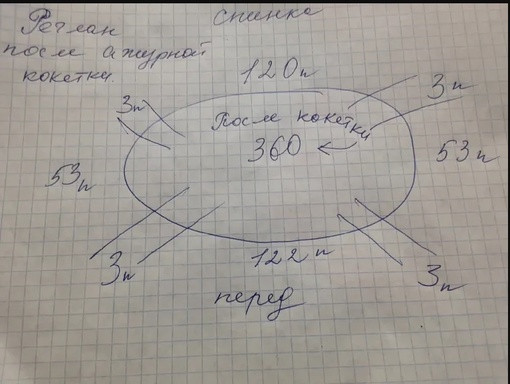 Реглан
после ажурной
кокетки.
спинка
120п
3п
3п
После кокетки
360
53п
53п
3п
122п
3п
перед